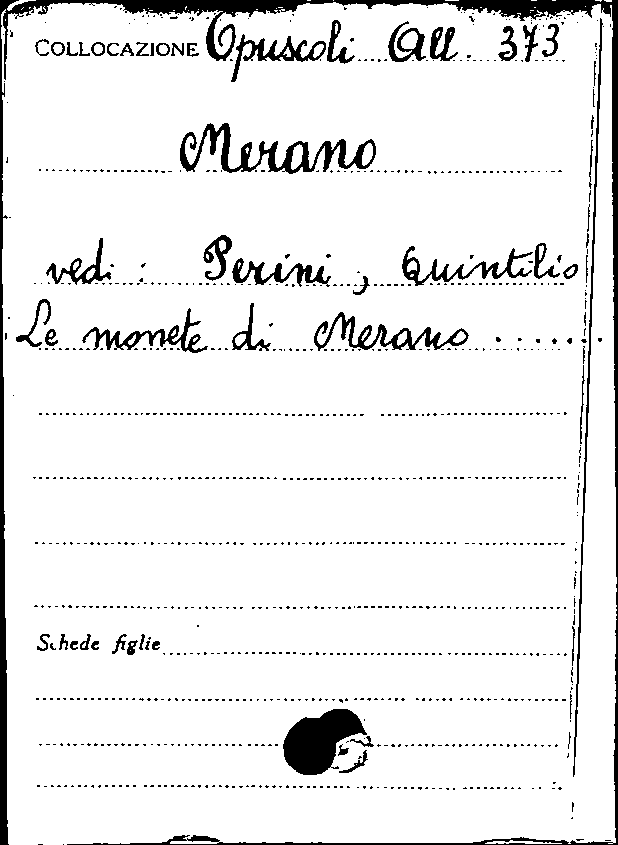 COLLOCAZIONE Opuscoli All. 373
Merano
vedi : Perini, Quintilio
Le monete di Merano .......
Schede figlie